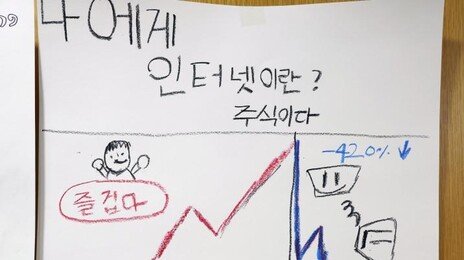 나에게
인터넷이란?
주식이다
-420%
즐겁다